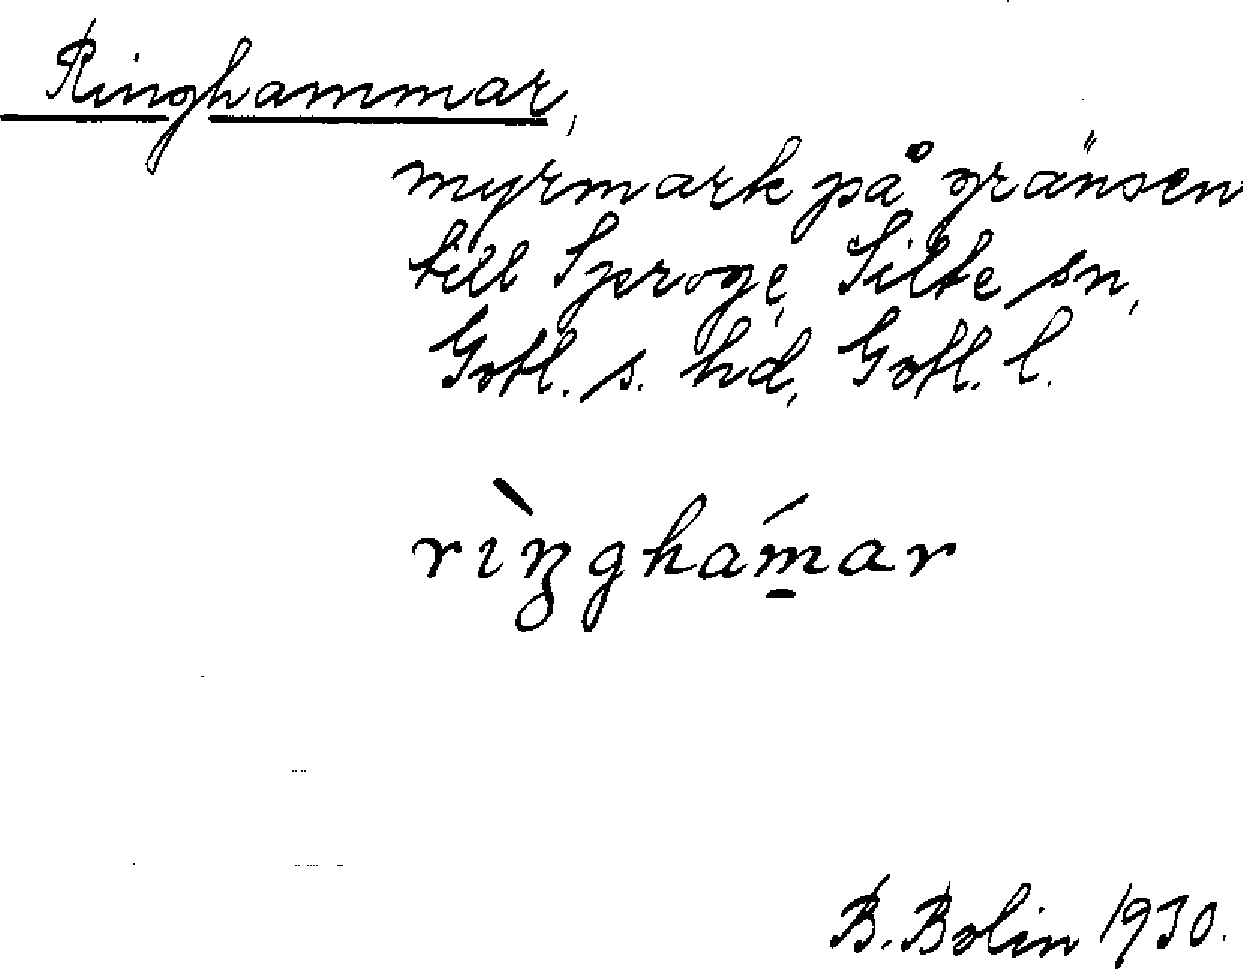 Ringhammar,
myrmark på gränsen
till Sproge, Silte sn,
Gotl. s. hd, Gotl. l.
rìŋghám̱ar
B. Bolin 1930.